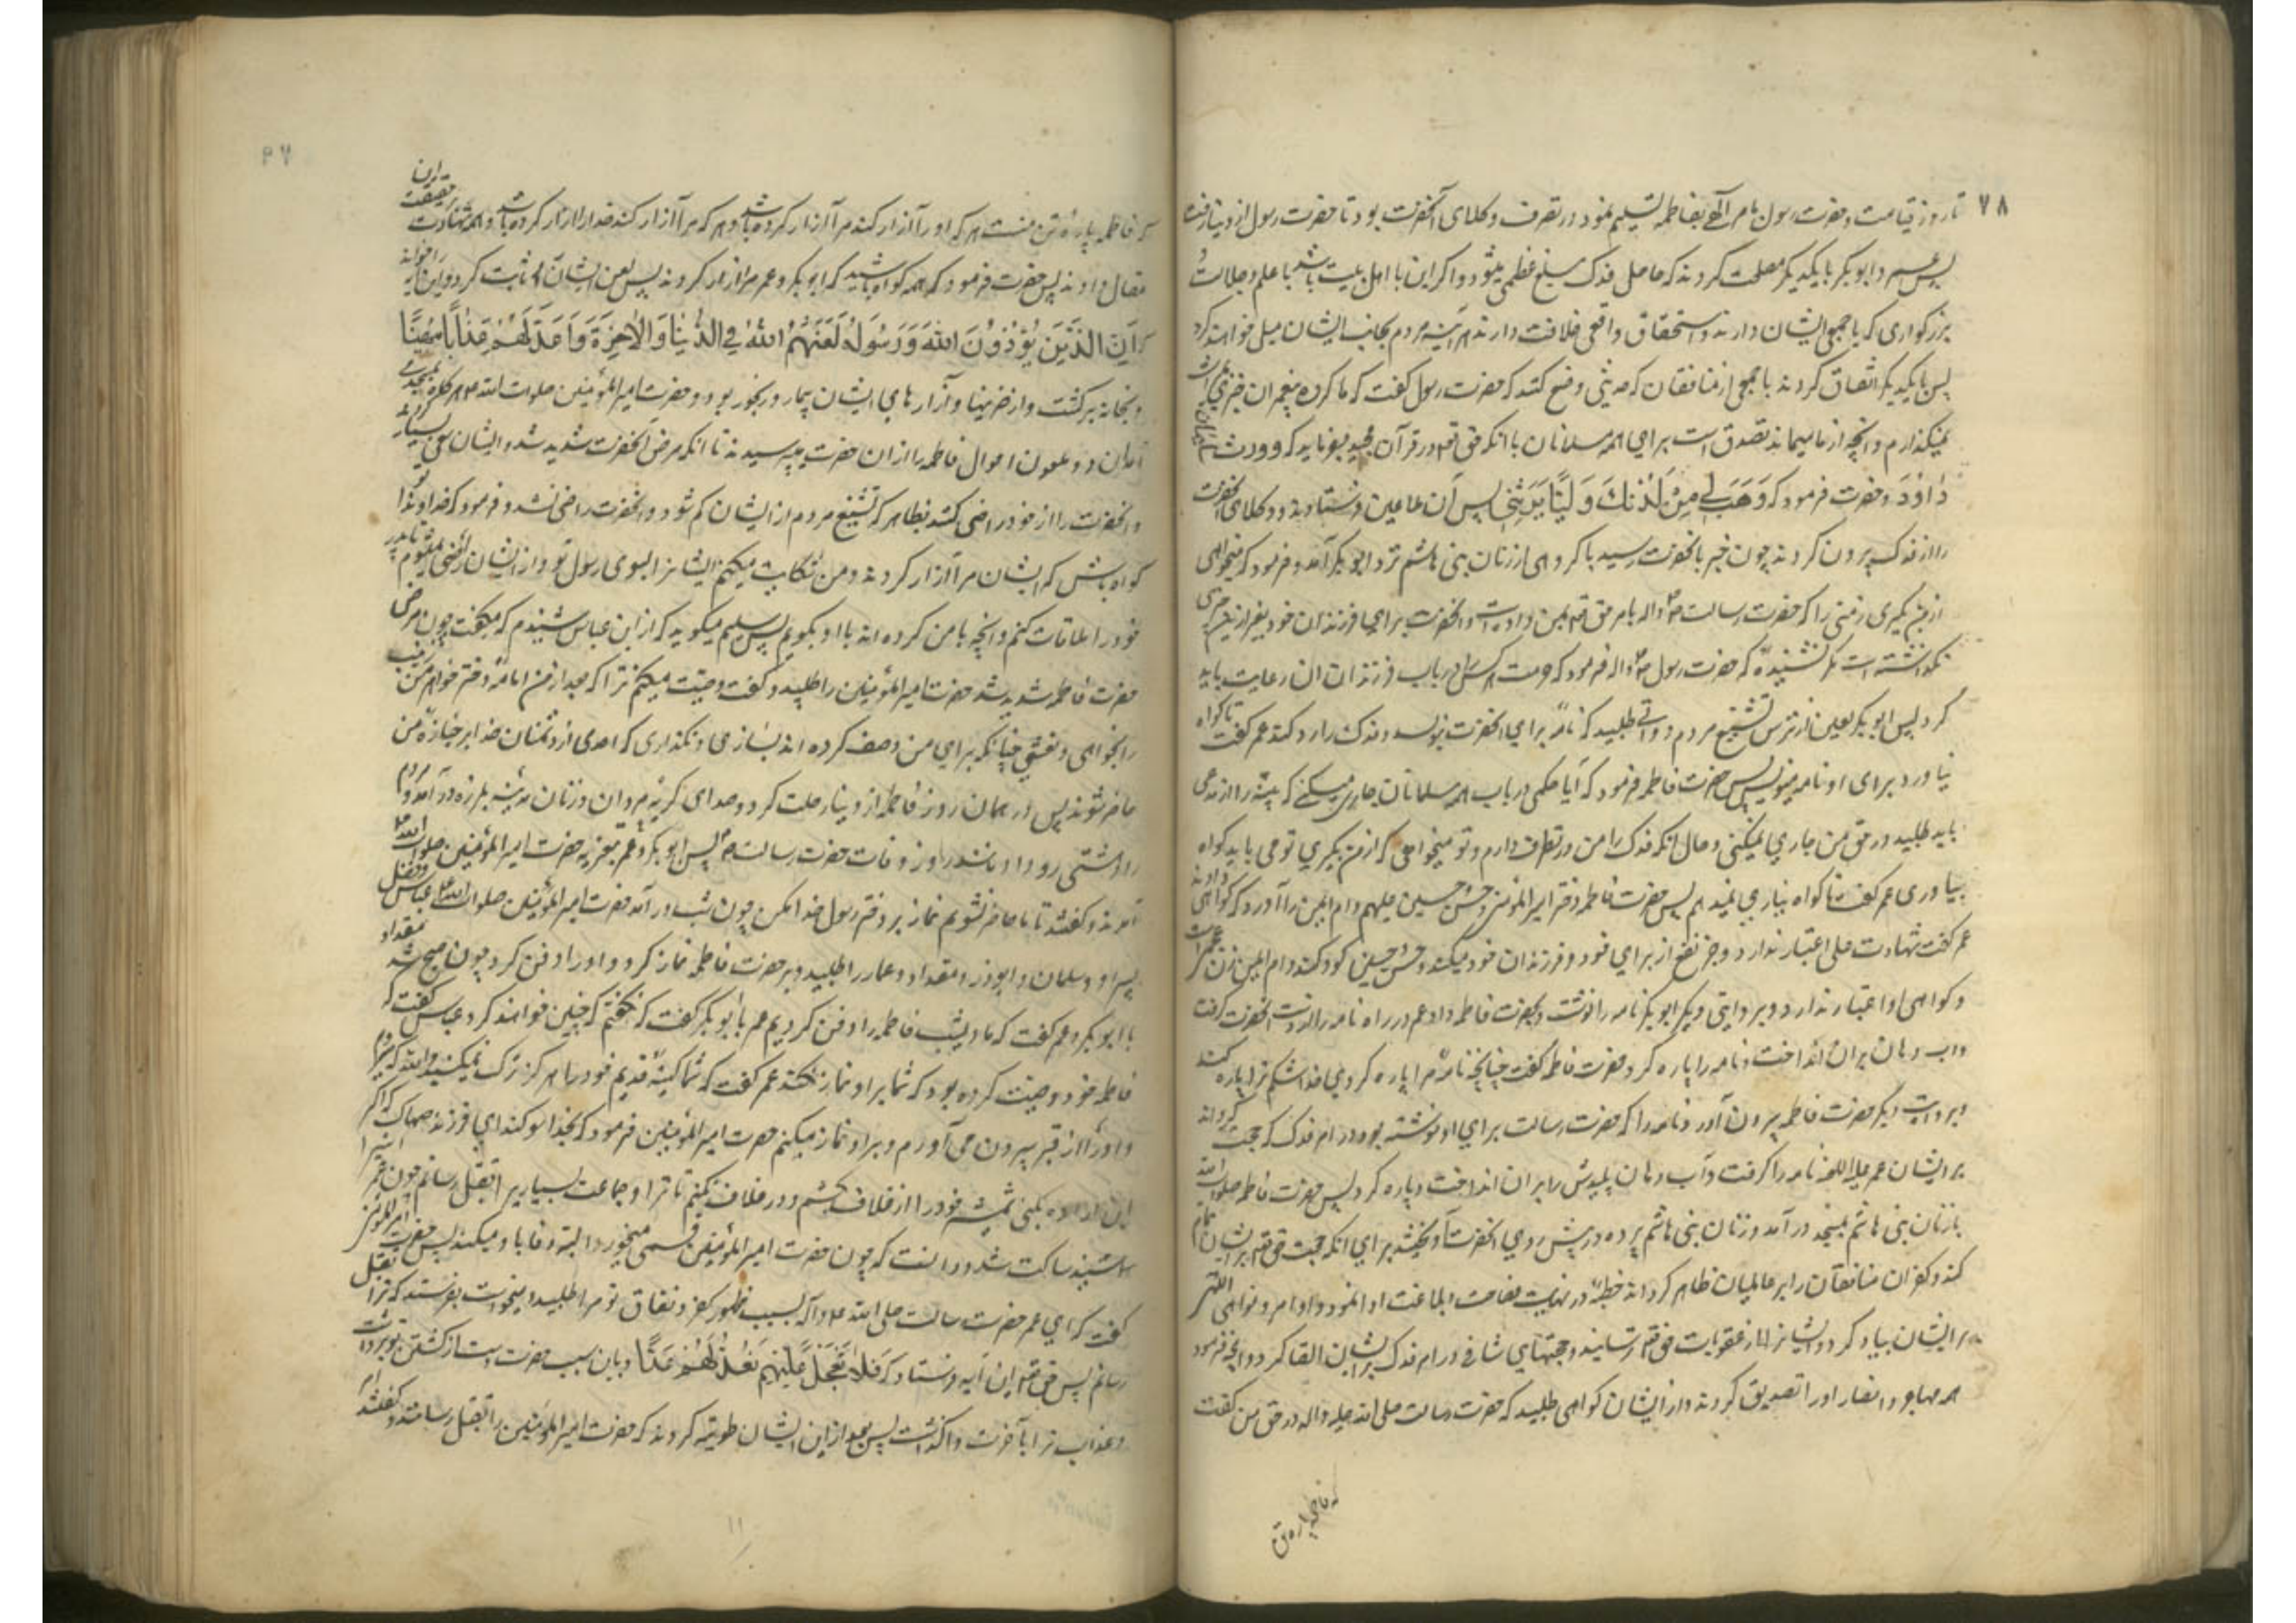 ۷۸
تا روز قیامت و حضرت رسول بامر الهی بفاطمه تسلیم نمود و در تصرف وکلای آنحضرت بود تا حضرت رسول از دنیا رفت
پس عمر و ابوبکر با یکدیگر مصلحت کردند که حاصل فدک مبلغ عظمی میشود و اگر این با اهل بیت باشد با علم و جلالت
بزرگواری که با جمیع ایشان دارند و استحقاق واقعی خلافت دارند هر آینه مردم بجانب ایشان میل خواهند کرد
پس با یکدیگر اتفاق کردند با جمعی از منافقان که حدیثی وضع کنند که حضرت رسول گفت که ما گروه پیغمبران چیزی میراث
نمیگذاریم و انچه از ما میماند تصدق است برای همه مسلمانان با آنکه حق تعم در قرآن مجید میفرماید که وورث سلیمان
داود و حضرت فرمود که وهب لی من لدنک ولیا یرثنی پس آن ملاعین فرستادند و وکلای آنحضرت
را از فدک بیرون کردند چون خبر بآنحضرت رسید با گروهی از زنان بنی هاشم نزد ابوبکر آمد و فرمود که میخواهی
از من بگیری زمینی را که حضرت رسالت ص واله بامر حق تعم بمن داده است و آنحضرت برای فرزندان خود بغیر از این چیزی
نگذاشته است مگر نشنیدهٔ که حضرت رسول ص واله فرمود که حرمت هر کس را در باب فرزندان ان رعایت باید
کرد پس ابوبکر لعین از ترس تشنیع مردم دواتی طلبید که نامهٔ برای آنحضرت بنویسد و فدک را رد کند عمر گفت تا گواه
نیاورد برای او نامه منویس پس حضرت فاطمه فرمود که آیا حکمی در باب همه مسلمانان جاری میکنی که بینه را از مدعی
باید طلبید در حق من جاری نمیکنی و حال آنکه فدک را من در تصرف دارم و تو میخواهی که از من بگیری تو می باید گواه
بیاوری عمر گفت تا گواه نیاری نمیدهم پس حضرت فاطمه و حضرت امیر المؤمنین و حسن و حسین علیهم و ام ایمن را آورد که گواهی دادند
عمر گفت شهادت علی اعتبار ندارد و جر نفع از برای خود و فرزندان خود میکند و حسن و حسین کودکند و ام ایمن زن عجم است
و گواهی او اعتبار ندارد و بروایتی دیگر ابوبکر نامه را نوشت و بحضرت فاطمه داد عمر در راه نامه را از دست آنحضرت گرفت
و اب دهان بر ان انداخت و نامه را پاره کرد حضرت فاطمه گفت چنانچه نامهٔ مرا پاره کردی خدا شکم ترا پاره کند
و بروایت دیگر حضرت فاطمه بیرون آورد نامه را که حضرت رسالت برای او نوشته بود در امر فدک که حجت گرداند
بر ایشان عمر علیه اللعنه نامه را گرفت و آب دهان پلیدش را بر ان انداخت و پاره کرد پس حضرت فاطمه صلوات الله
با زنان بنی هاشم بمسجد درآمد و زنان بنی هاشم پرده در پیش روی آنحضرت آویختند برای آنکه حجت حق تعم بر ایشان تمام
کند و کفر ان منافقان را بر عالمیان ظاهر گرداند خطبهٔ در نهایت فصاحت و بلاغت ادا نمود و اوامر و نواهی الهی
بر ایشان بیاد کرد و ایشانرا از عقوبات حق تعم ترسانید و حجتهای شافی در امر فدک بر ایشان القا کرد و آنچه فرمود
همه مهاجر و انصار او را تصدیق کردند و از ایشان گواهی طلبید که حضرت رسالت صلی الله علیه واله در حق من گفت
که فاطمه پاره تن
۷۹
که فاطمه پاره تن منست هر که او را آزار کند مرا آزار کرده باشد و هر که مرا آزار کند خدا را آزار کرده باشد و همه شهادت حقیقت ان
مقال دادند پس حضرت فرمود که همه گواه باشید که ابوبکر و عمر مرا آزار کردند پس لعن ایشان را ثابت کرد و این آیه را خواند
که ان الذین یؤذون الله ورسوله لعنهم الله فی الدنیا والآخرة واعد لهم عذابا مهینا
و بخانه برگشت و از ضربها و آزارهای ایشان بیمار و رنجور بود و حضرت امیر المؤمنین صلوات الله ع هر گاه بمسجد می
آمد آن دو ملعون احوال فاطمه را از ان حضرت میپرسیدند تا آنکه مرض آنحضرت شدید شد و ایشان سعی بسیار کردند
و آنحضرت را از خود راضی کنند بظاهر که تشنیع مردم از ایشان کم شود و آنحضرت راضی نشد و فرمود که خداوندا تو
گواه باش که ایشان مرا آزار کردند و من شکایت میکنم ایشانرا بسوی رسول تو و از ایشان راضی نمیشوم تا پدر
خود را ملاقات کنم و انچه با من کرده اند با او بگویم پس سلیم میگوید که از ابن عباس شنیدم که میگفت چون مرض
حضرت فاطمه شدید شد حضرت امیر المؤمنین را طلبید و گفت وصیت میکنم ترا که بعد از من امامه دختر خواهر من زینب
را بخواهی و نعشی چنانکه برای من وصف کرده اند بسازی و نگذاری که احدی از دشمنان خدا بر جنازهٔ من
حاضر شوند پس در همان روز فاطمه از دنیا رحلت کرد و صدای گریه مردان و زنان مدینه بلرزه درآمد و مردم
را دهشتی رو داد مانند روز وفات حضرت رسالت ص پس ابوبکر و عمر بتعزیه حضرت امیر المؤمنین صلوات الله ع
آمدند و گفتند تا ما حاضر نشویم نماز بر دختر رسول خدا مکن چون شب درآمد حضرت امیر المؤمنین صلوات الله ع عباس و فضل
پسر او و سلمان و ابوذر و مقداد و عمار را طلبید و بر حضرت فاطمه نماز کرد و او را دفن کرد چون صبح شد مقداد
با ابوبکر و عمر گفت که ما دیشب فاطمه را دفن کردیم عمر با ابوبکر گفت که نگفتم که چنین خواهند کرد عباس گفت که
فاطمه خود وصیت کرده بود که شما بر او نماز نکنید عمر گفت که شما کینهٔ قدیم خود را هرگز ترک نمیکنید والله که میروم
و او را از قبر بیرون می آورم و بر او نماز میکنم حضرت امیر المؤمنین فرمود که بخدا سوگند ای فرزند صهاک که اگر
این اراده بکنی شمشیر خود را از غلاف بکشم و در غلاف نکنم تا ترا و جماعت بسیار بر قتل رسانم چون عمر اینرا
شنید ساکت شد و دانست که چون حضرت امیر المؤمنین قسمی میخورد البته وفا باو میکند پس حضرت امیر المؤمنین
گفت که ای عمر حضرت رسالت صلی الله علیه وآله بسبب ظهور کفر و نفاق تو مرا طلبید و میخواست بفرستد که ترا بقتل
رسانم پس حق تعم این آیه فرستاد که فلا تعجل علیهم انما نعد لهم عدا و باین سبب حضرت دست از کشتن تو برداشت
و عذاب ترا بآخرت واگذاشت پس بعد از این ایشان طویه کردند که حضرت امیر المؤمنین را بقتل رسانند و گفتند
۱۱